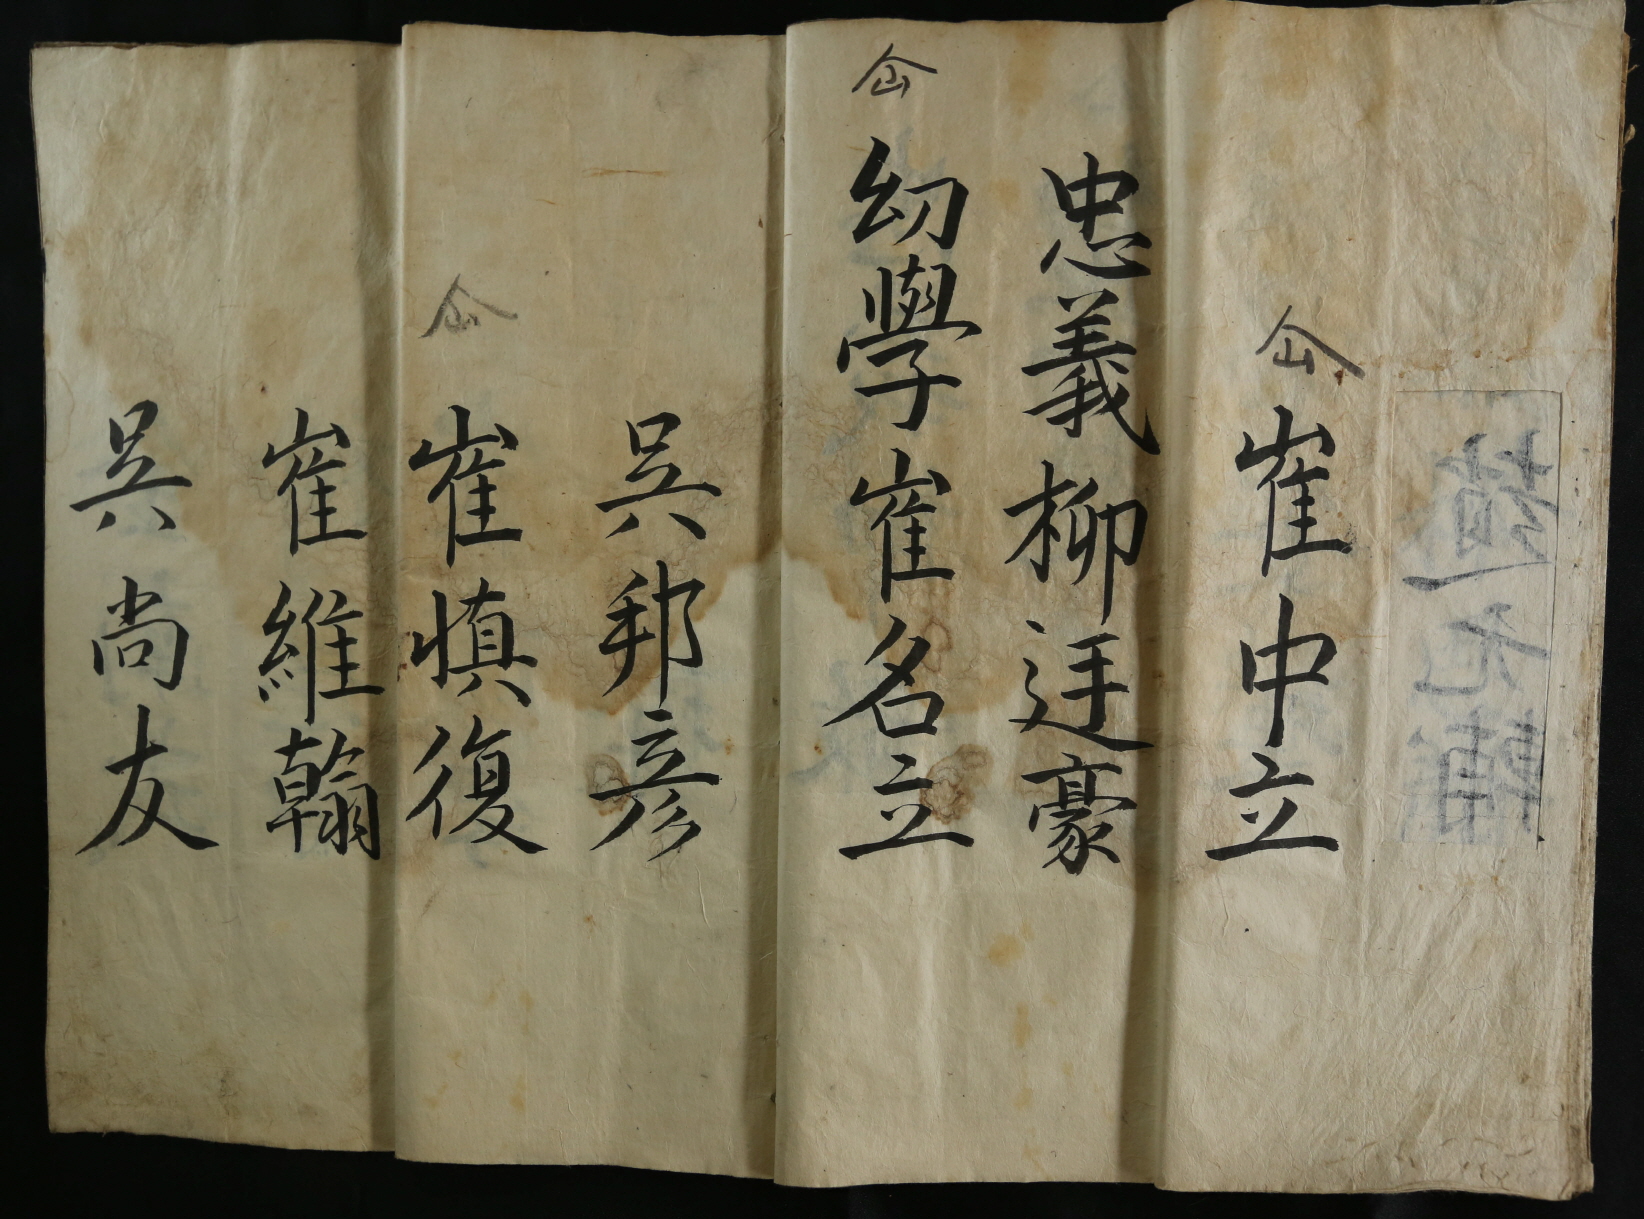 崔中立
忠義柳迋豪
仚
幼學崔名立
吳邦彦
崔慎復
崔維翰
吳尚友